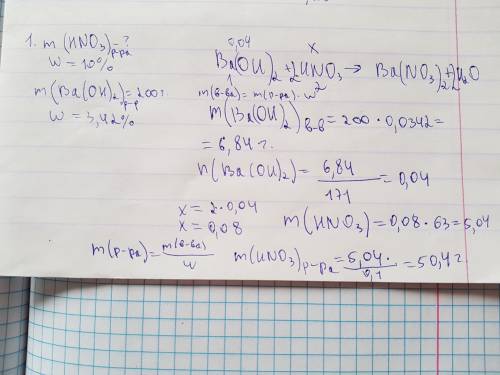 1. m (HNO3)р-ра = ?
w = 10%
m(Ba(OH)2)р-р = 200 г.
w = 3,42%
0,04 x
Ba(OH)2 + 2HNO3 → Ba(NO3)2 + 2H2O
1 2
m(в-ва) = m(р-ра) · w
m(Ba(OH)2)в-в = 200 · 0,0342 =
= 6,84 г.
n(Ba(OH)2) = 6,84 / 171 = 0,04
x = 2 · 0,04
x = 0,08
m(HNO3) = 0,08 · 63 = 5,04
m(р-ра) = m(в-ва) / w
m(HNO3)р-ра = 5,04 / 0,1 = 50,4 г